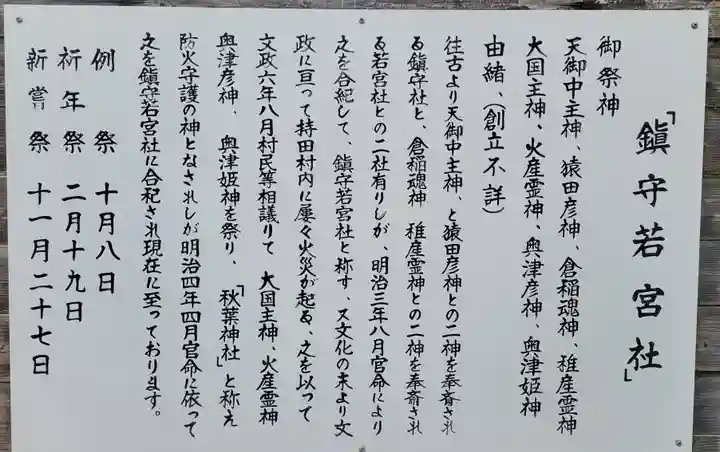 「鎮守若宮社」
御祭神
天御中主神、猿田彦神、倉稲魂神、稚産霊神
大国主神、火産霊神、奥津彦神、奥津姫神
由緒、(創立不詳)
往古より天御中主神、と猿田彦神との二神を奉斎され
る鎮守社と、倉稲魂神 稚産霊神との二神を奉斎され
る若宮社との二社有りしが、明治三年八月官命により
之を合紀して、鎮守若宮社と称す、又文化の末より文
政に亘って持田村内に屡々火災が起る、之を以って
文政六年八月村民等相議りて 大国主神、火産霊神
奥津彦神、 奥津姫神を祭り、「秋葉神社」と称え
防火守護の神となされしが明治四年四月官命に依って
之を鎮守若宮社に合祀され現在に至っております。
例祭 十月八日
祈年祭 二月十九日
新嘗祭 十一月二十七日